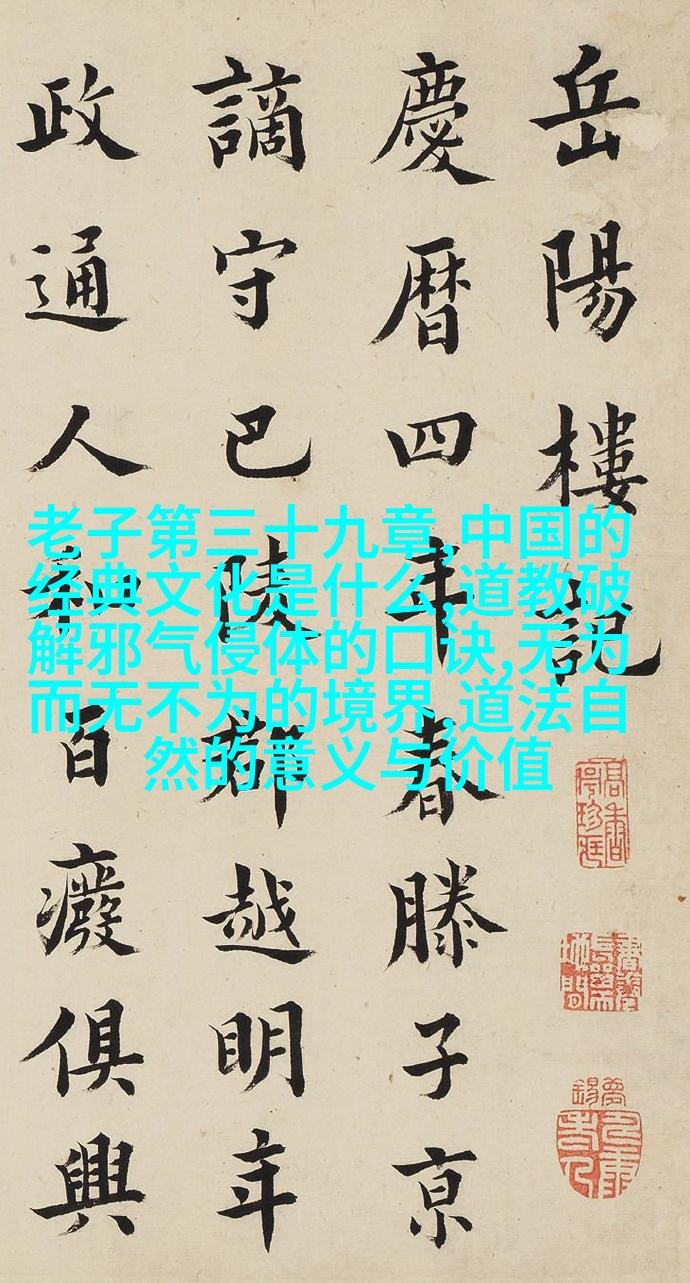 岳陽樓記
慶暦四年春滕子京
謫守巴陵郡越明年
政通人和百癈俱興
老子第三十九章,中国的
经典文化是什么,道教破
解邪气侵体的口诀,无为
而无不为的境界,道法自
然的意义与价值